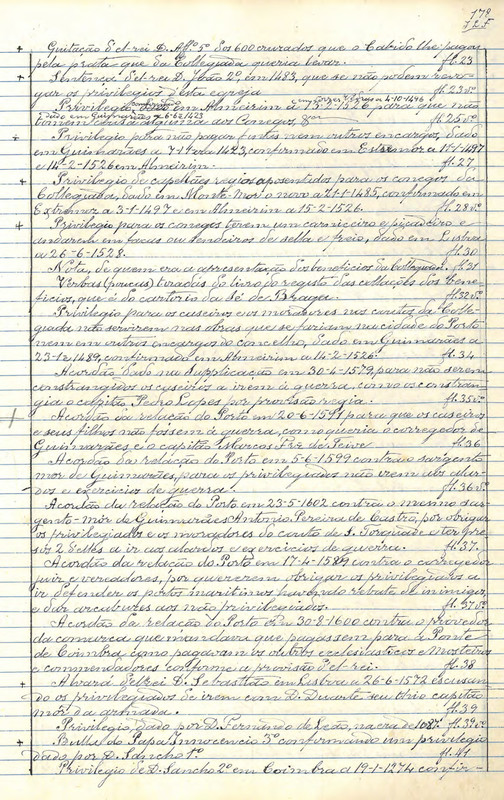 178
Quitação d'el-rei D. Aff.º 5º dos 600 cruzados que o Cabido lhe pagou
pela prata que da Collegiada queria levar. fl. 23
Sentença d'el-rei D. João 2º em 1483, que se não podem revo-
gar os privilegios d'esta egreja fl. 23 vº
Privilegio, dado em Almeirim a 15-2-1526 para que não
Dado em Guimarães a 6-6-1423
Privilegio para não pagar fintas nem outros encargos, dado
em Guimarães a 7-1-1423, confirmado em Estremoz a 1-1-1497
e 14-2-1526 em Almeirim. fl. 27
Privilegio de capellães regios aposentados para os conegos da
Collegiada, dado em Monte-Mór o novo a 1-1-1485, confirmado em
Extremoz a 3-1-1497 e em Almeirim a 15-2-1526. fl. 28 vº
Privilegio para os conegos terem um carniceiro e picadeiro e
andarem em facas ou sendeiros de sella e freio, dado em Lisboa
a 26-6-1528. fl. 30
Nota, de quem era a apresentação dos beneficios da Collegiada. fl. 31
Verbas (poucas) tiradas do livro do registo das collações dos bene-
ficios, que é do cartorio da Sé de Braga. fl. 32 vº
Privilegio para os caseiros e os moradores nos coutos da Colle-
giada não servirem nas obras que se faziam na cidade do Porto
nem em outros encargos do concelho, dado em Guimarães a
23-12-1489, confirmado em Almeirim a 14-2-1526. fl. 34
Acordão dado na Supplicação em 30-4-1579, para não serem
constrangidos os caseiros a irem á guerra, como os constran-
gia o capitão Pedro Lopes por provisão regia. fl. 35 vº
Acordão da relação do Porto em 20-6-1591 para que os caseiros
e seus filhos não fossem á guerra, como queria o corregedor de
Guimarães e o capitão Marcos Frz de Freire fl. 36
Acordão da relação do Porto em 5-6-1599 contra o sargento
mór de Guimarães, para os privilegiados não irem aos alar-
dos e exercicios de guerra. fl. 36 vº
Acordão da relação do Porto em 23-5-1602 contra o mesmo sar-
gento-mór de Guimarães Antonio Pereira de Castro, por obrigar
os privilegiados e os moradores do couto de S. Torquade e ter pre-
sos 2 d'elles a ir aos alardos e exercicios de guerra. fl. 37.
Acordão da relação do Porto em 17-4-1589 contra o corregedor
juiz e vereadores, por quererem obrigar os privilegiados a
ir defender os portos maritimos havendo rebate de inimigos,
e dar arcabuzes aos não privilegiados. fl. 37 vº
Acordão da relação do Porto em 30-8-1600 contra o provedor
da comarca que mandava que pagassem para a Ponte
de Coimbra como pagavam os outros ecclesiasticos e Mosteiros
e commendadores conforme a provisão d'el-rei. fl. 38
Alvará d'el-rei D. Sebastião em Lisboa a 26-6-1572 escusan-
do os privilegiados de irem com D. Duarte seu thio capitão
mór da armada. fl. 39
Privilegio dado por D. Fernando de Leão, na era de 1087. fl. 39 vº
Bulla do Papa Innocencio 3º confirmando um privilegio
dado por D. Sancho 1º fl. 41
Privilegio de D. Sancho 2º em Coimbra a 19-1-1274 confir-